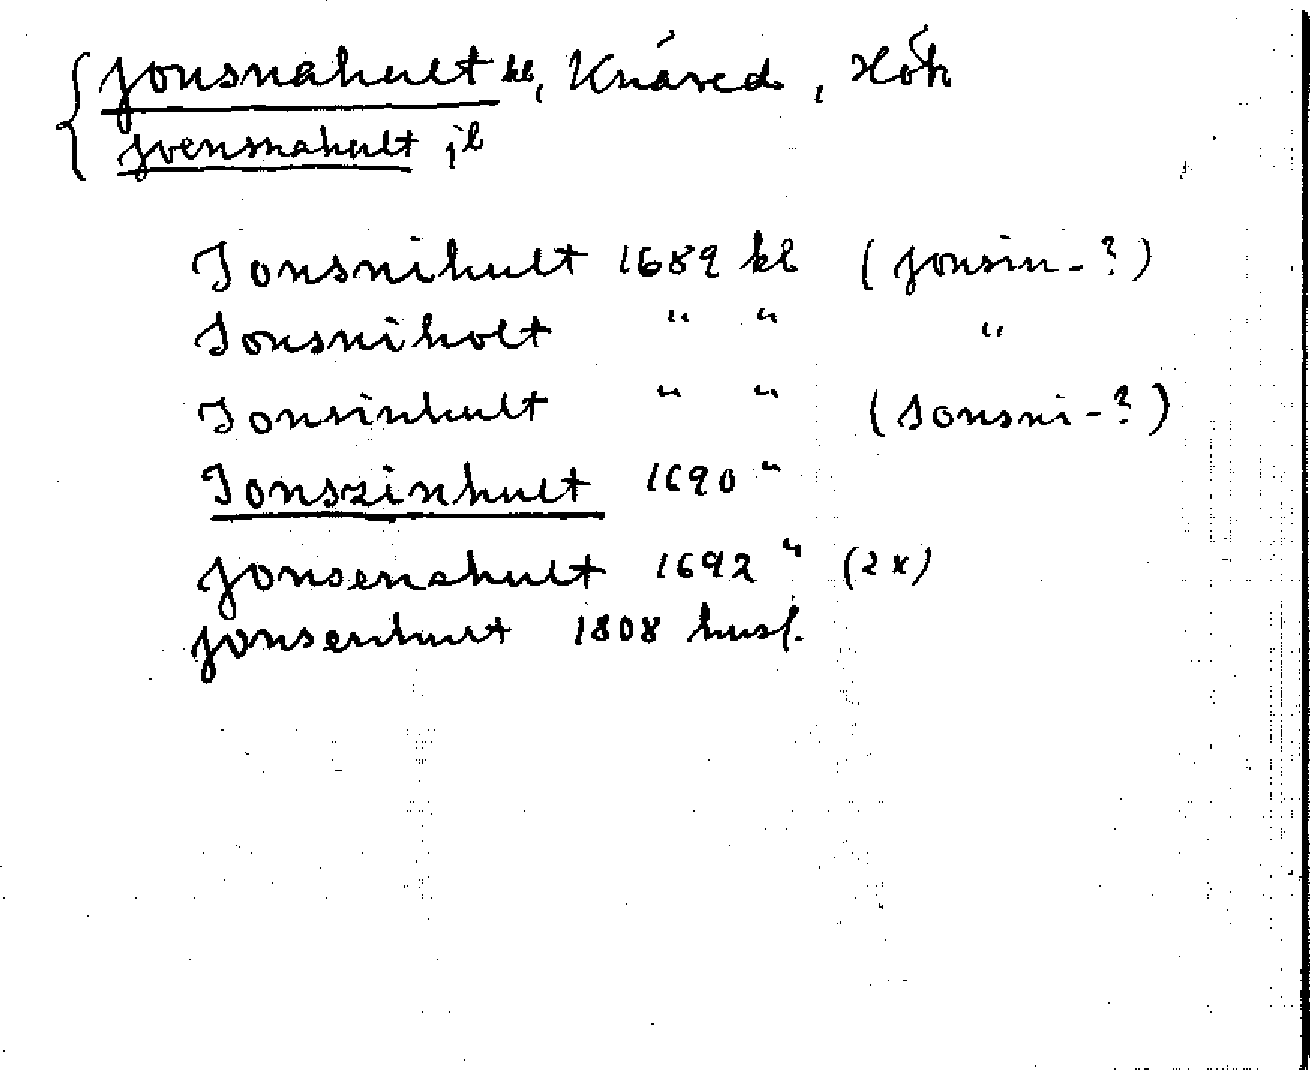 Jonsnahult kl, Knäred, Hök
Jvensnahult jb
Jonsnihult 1689 kl (Jonsin-?)
Jonsniholt " " "
Jonsinhult " " (Jonsni-?)
Jonszinhult 1690 "
Jonsenshult 1692 " (2x)
Jonsenhult 1808 husf.